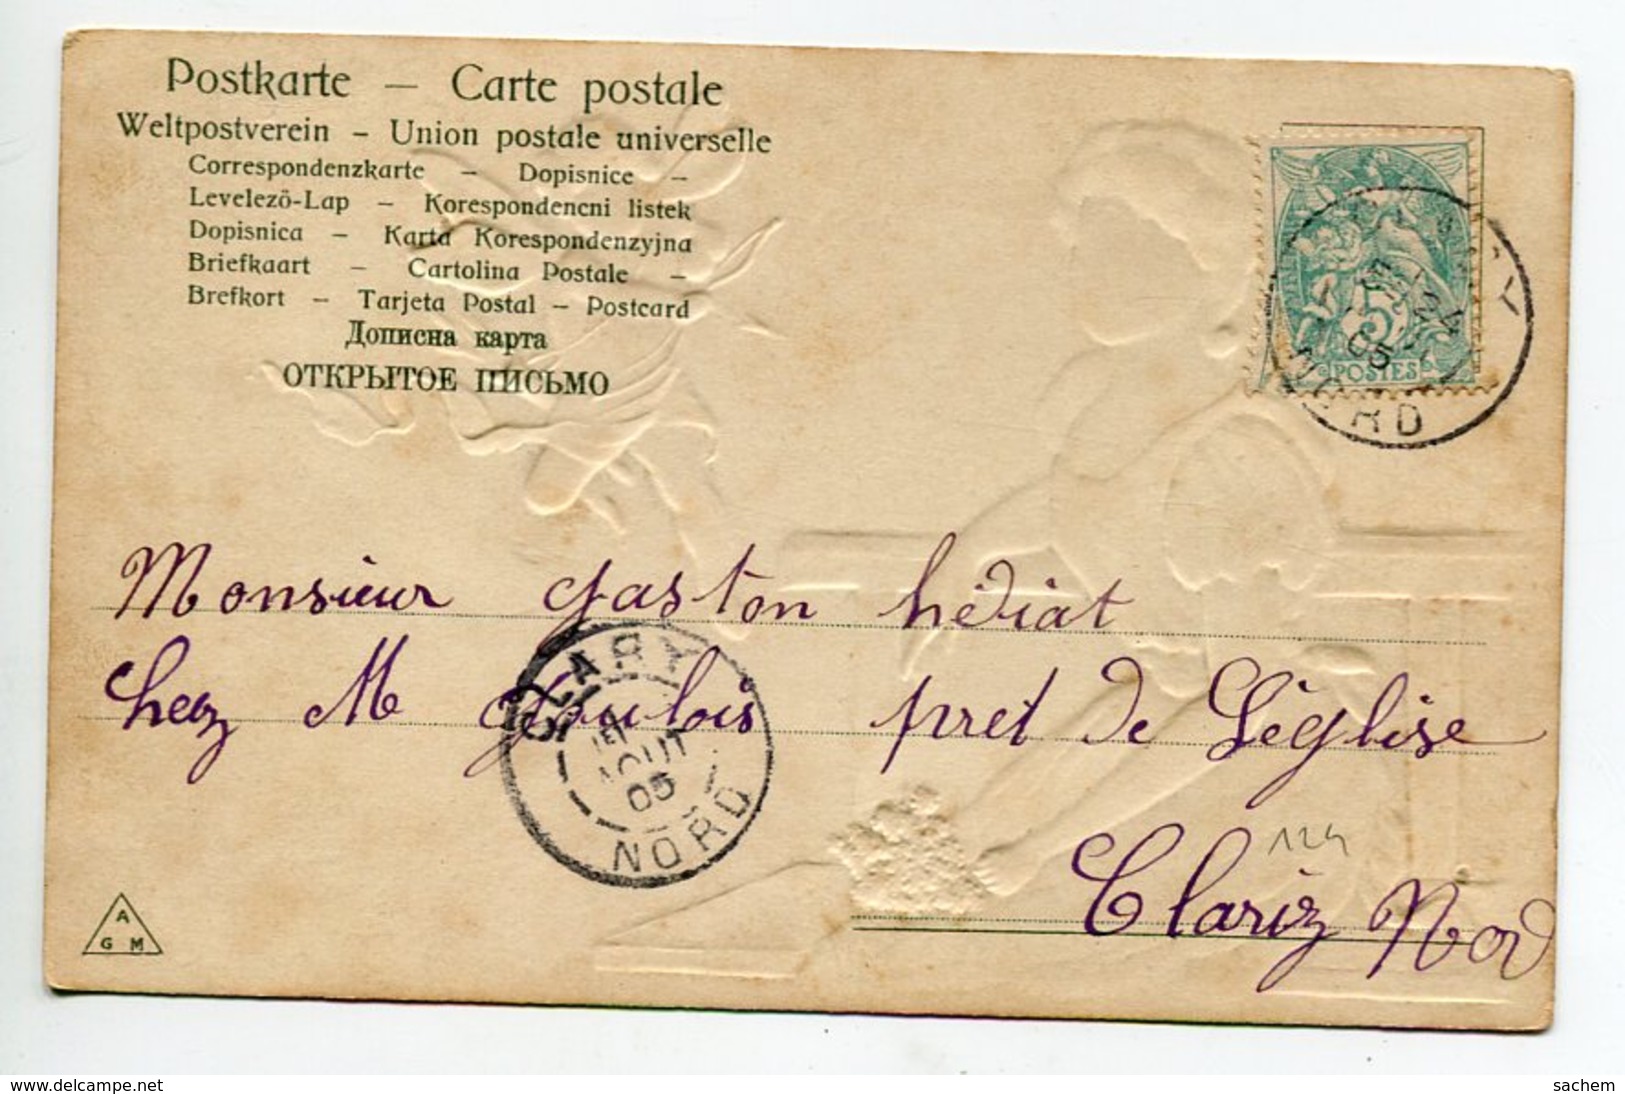 Postkarte — Carte postale
Weltpostverein – Union postale universelle
Correspondenzkarte – Dopisnice –
Levelezö-Lap – Korespondencni listek
Dopisnica – Karta Korespondenzyjna
Briefkaart – Cartolina Postale –
Brefkort – Tarjeta Postal – Postcard
Дописна карта
ОТКРЫТОЕ ПИСЬМО
5
POSTES
05
NORD
Monsieur gaston hédiat
Chez M goulois pret de Léglise
CLARY
AOUT
05
NORD
124
Clariz Nord
A
G M
www.delcampe.net
sachem